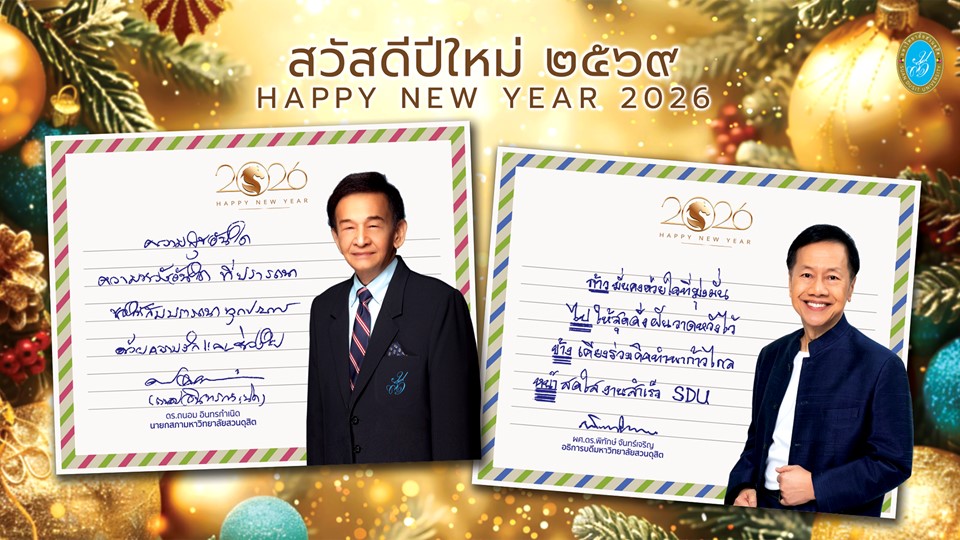 สวัสดีปีใหม่ ๒๕๖๙
HAPPY NEW YEAR 2026
2026
HAPPY NEW YEAR
ความสุขอันใด
ความหวังอันใด ที่ปรารถนา
ขอให้สมปรารถนาทุกประการ
ด้วยความรัก
ดร.ถนอม อินทรกำเนิด
นายกสภามหาวิทยาลัยสวนดุสิต
2026
HAPPY NEW YEAR
ก้าว มั่นคงด้วยใจที่มุ่งมั่น
ไป ให้สุดดั่งฝันวาดหวังไว้
ข้าง เคียงร่วมคิดทำพาก้าวไกล
หน้า สดใส งานสำเร็จ SDU
ผศ.ดร.พิทักษ์ จันทร์เจริญ
อธิการบดีมหาวิทยาลัยสวนดุสิต